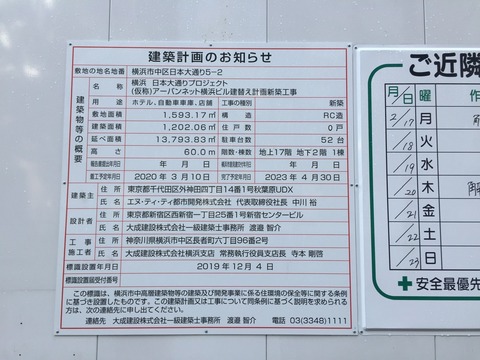 建築計画のお知らせ
敷地の地名地番 横浜市中区日本大通り5-2
建築物等の概要
名称 横浜 日本大通りプロジェクト
(仮称)アーバンネット横浜ビル建替え計画新築工事
用途 ホテル,自動車車庫,店舗 工事の種別 新築
敷地面積 1,593.17㎡ 構造 RC造
建築面積 1,202.06㎡ 住戸数 0戸
延べ面積 13,793.83㎡ 駐車台数 52台
高さ 60.0m 階数・棟数 地上17階 地下2階 1棟
年 月 日 年 月 日
着工予定年月日 2020年3月10日 完了予定年月日 2023年4月30日
建築主 住所 東京都千代田区外神田四丁目14番1号秋葉原UDX
氏名 エヌ・ティ・ティ都市開発株式会社 代表取締役社長 中川 裕
設計者 住所 東京都新宿区西新宿一丁目25番1号新宿センタービル
氏名 大成建設株式会社一級建築士事務所 渡邉 智介
工事施工者 住所 神奈川県横浜市中区長者町六丁目96番2号
氏名 大成建設株式会社横浜支店 常務執行役員支店長 寺本 剛啓
標識設置年月日 2019年12月4日
標識設置届受付年月日
この標識は、横浜市中高層建築物等の建築及び開発事業に係る住環境の保全等に関する条例
に基づき設置したものです。この建築計画又は工事について同条例に基づく説明を求められる
方は、次の連絡先に申し出てください。
連絡先 大成建設株式会社一級建築士事務所 渡邉 智介 電話 03(3348)1111
ご近隣
月/日 曜 作
2/17 月
/18 火
/19 水
/20 木
/21 金
/22 土
/23 日
安全最優先